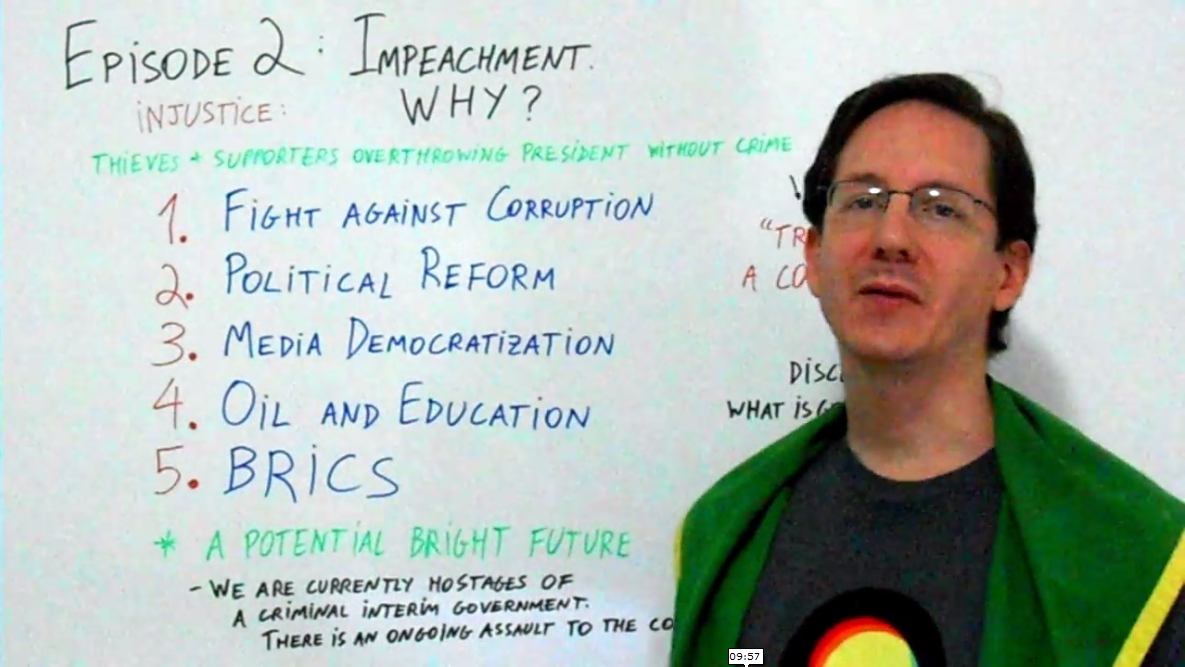 EPISODE 2: IMPEACHMENT.
WHY?
INJUSTICE:
THIEVES + SUPPORTERS OVERTHROWING PRESIDENT WITHOUT CRIME
1. FIGHT AGAINST CORRUPTION
2. POLITICAL REFORM
3. MEDIA DEMOCRATIZATION
4. OIL AND EDUCATION
5. BRICS
* A POTENTIAL BRIGHT FUTURE
- WE ARE CURRENTLY HOSTAGES OF
A CRIMINAL INTERIM GOVERNMENT.
THERE IS AN ONGOING ASSAULT TO THE
A
WHAT IS
09:57